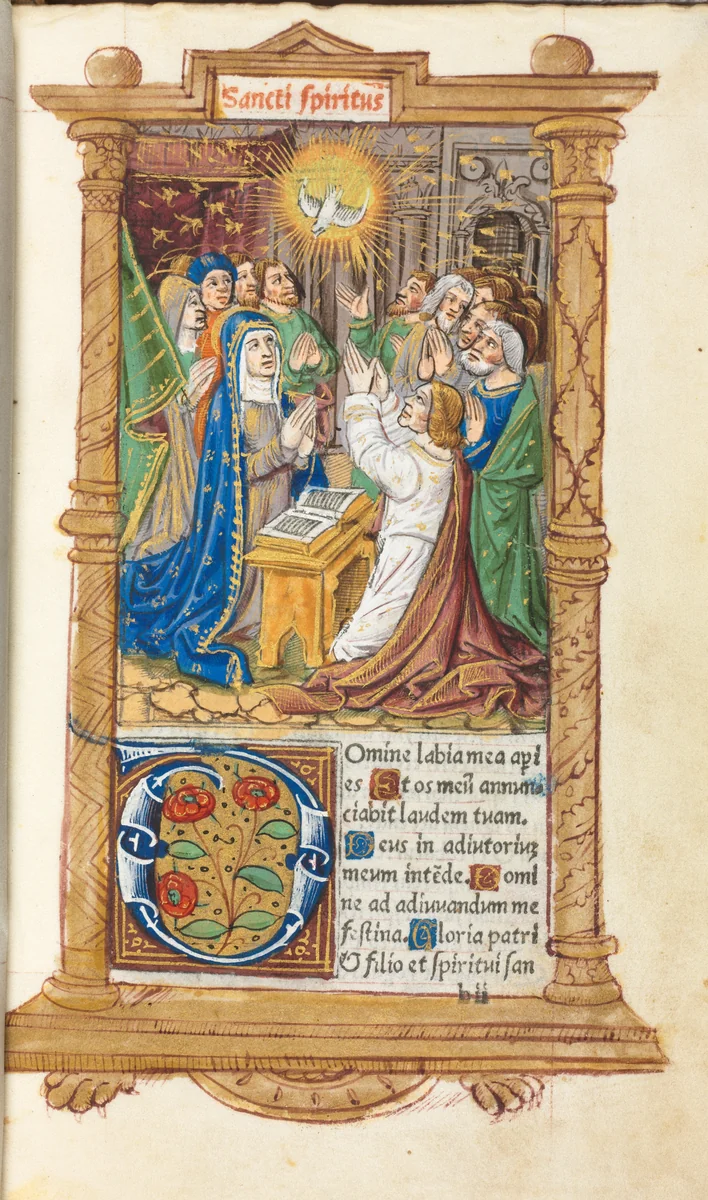 Sancti spiritus
Omine labia mea apri
es Et os meū annun
ciabit laudem tuam.
Deus in adiutoriuꝫ
meum intēde. Domi
ne ad adiuuandum me
festina. Gloria patri
& filio et spiritui san
h ii